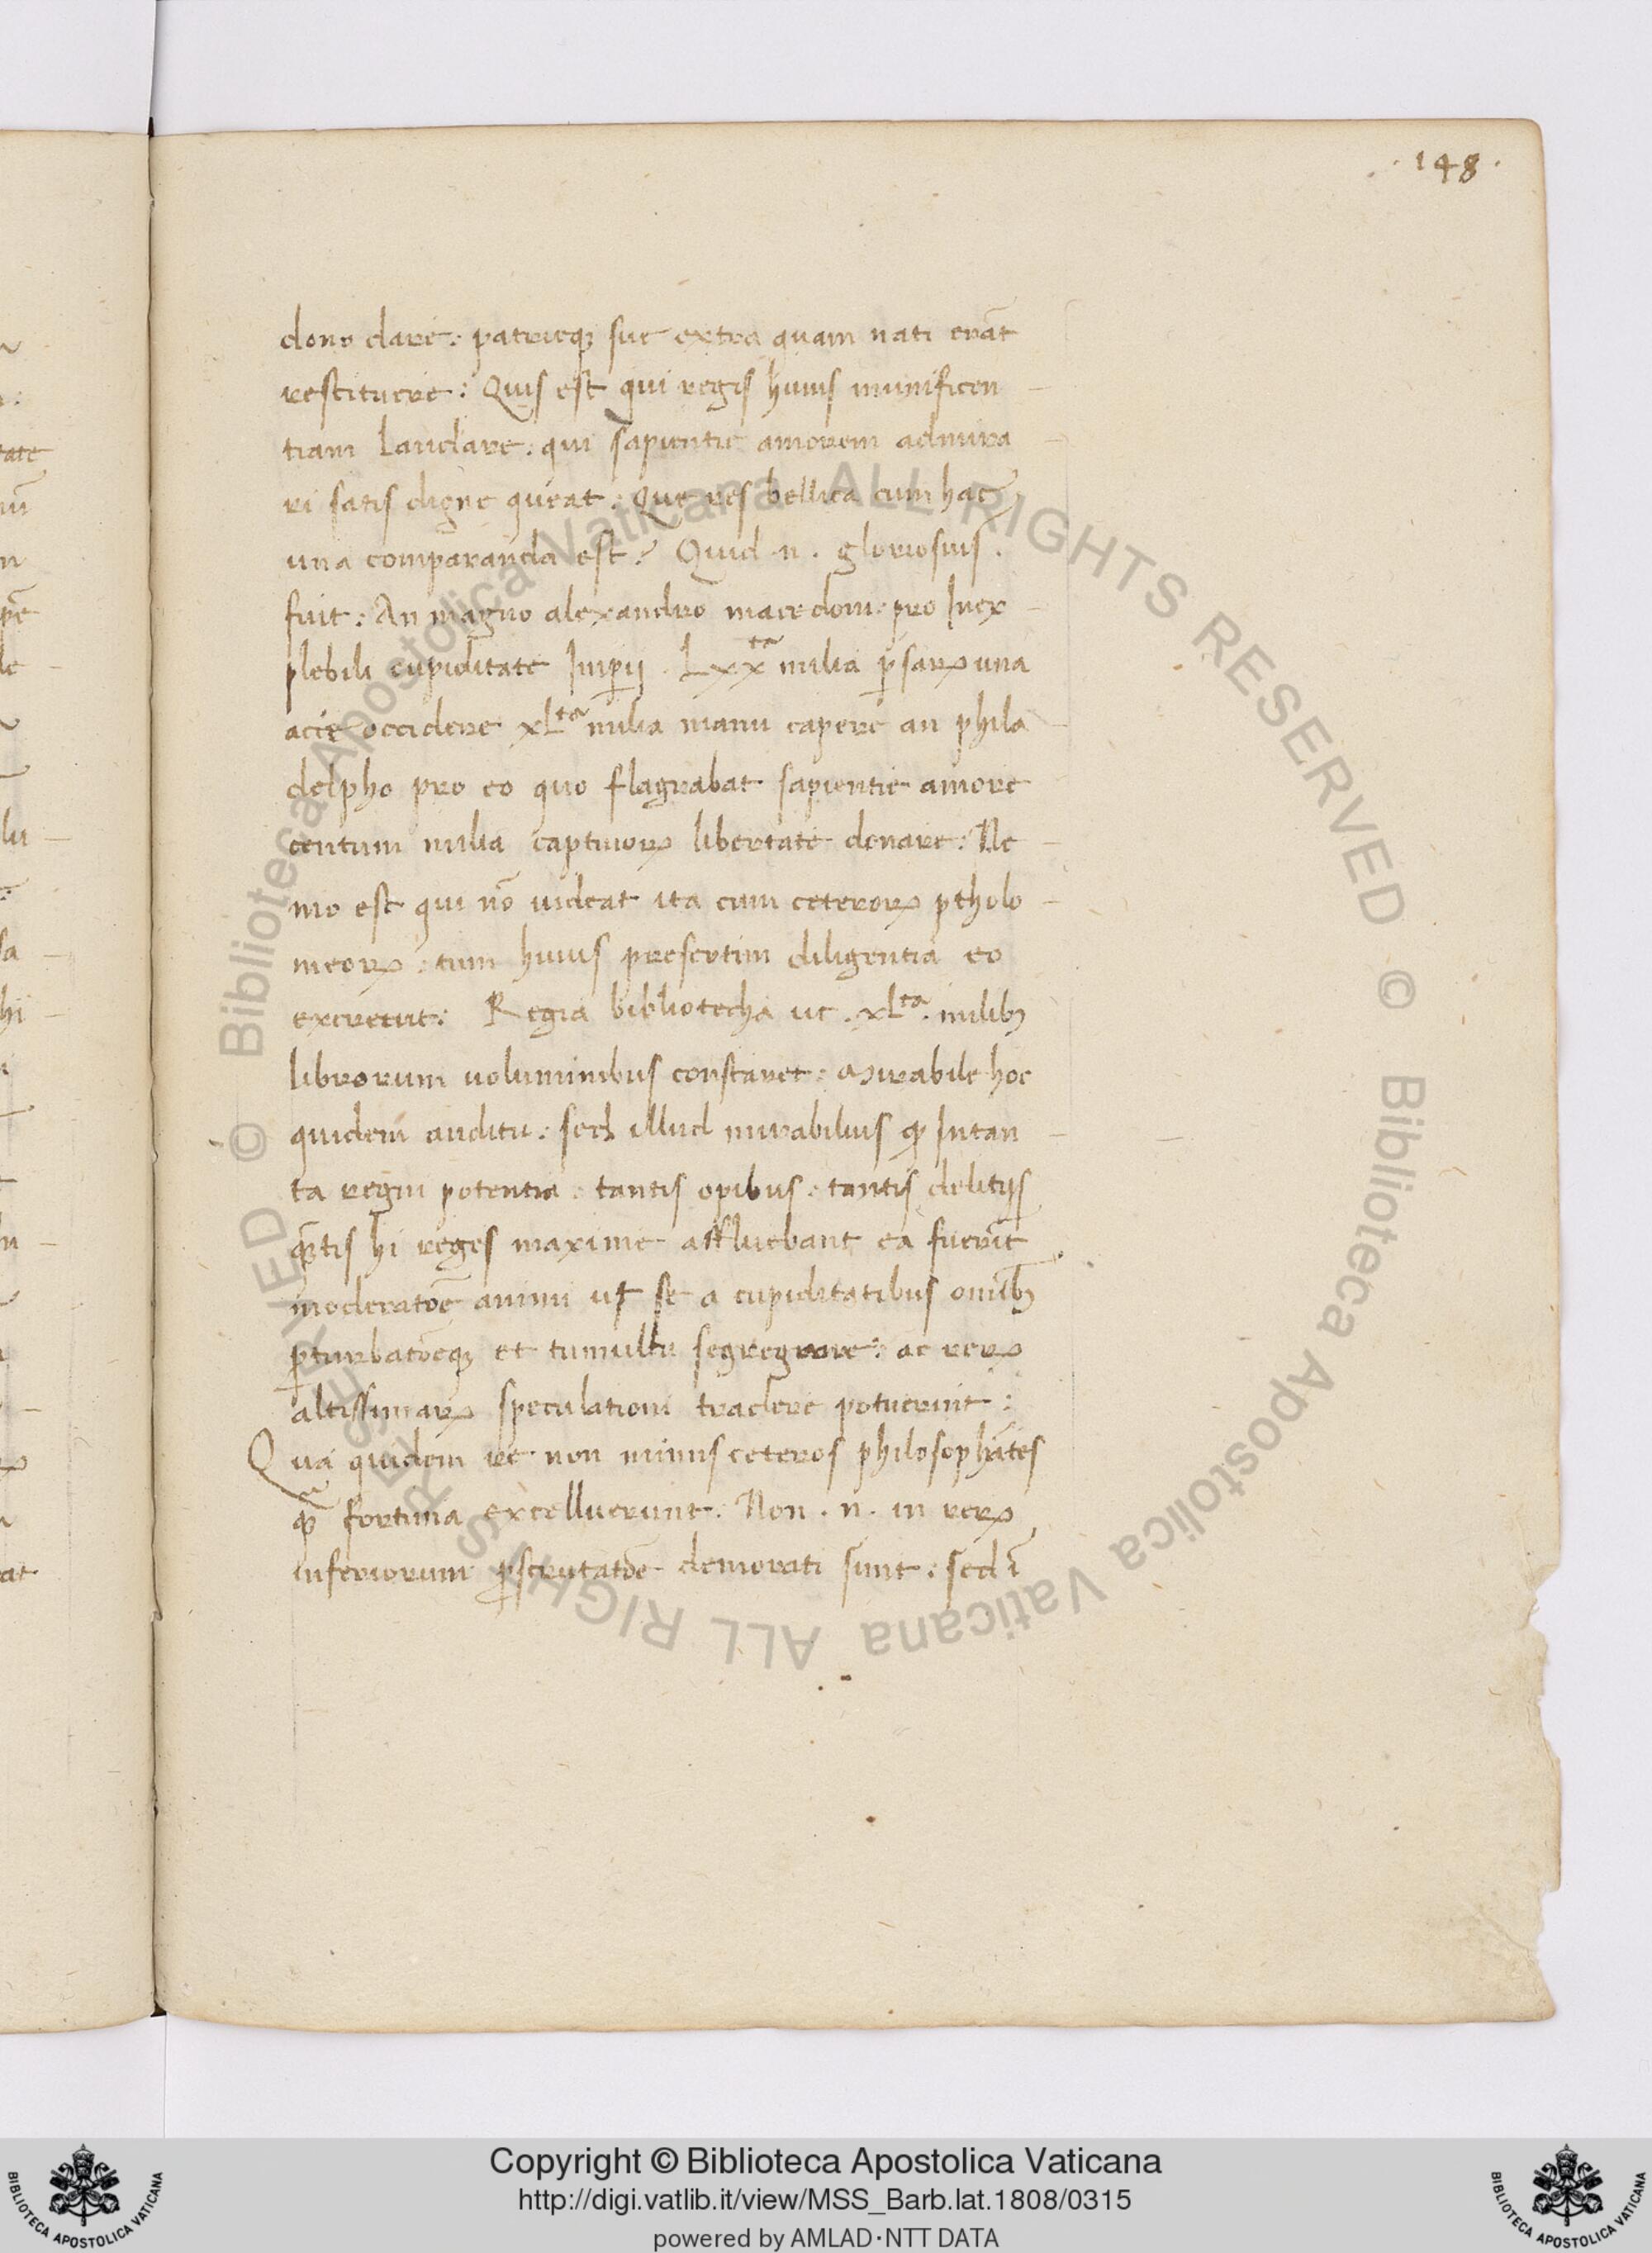 148.
dono dare: patrieq; sue extra quam nati erāt
restituere: Quis est qui regis huius munificen
tiam laudare: qui sapientie amorem admira
ri satis digne queat: Que res bellica cum hac
una comparanda est? Quid .n. gloriosius.
fuit: An magno alexandro macedoni: pro Inex
plebili cupiditate Imp̱ij. Lxxta milia p̱saꝝ una
acie occidere xLta milia manu capere an phila
delpho pro eo quo flagrabat sapientie amore
centum milia captiuoꝝ libertate donare: Ne
mo est qui nō uideat ita cum ceteroꝝ ptholo
meoꝝ: tum huius presertim diligentia eo
excreuit: Regia bibliotecha ut .xLta. milib;
librorum uoluminibus constaret: Mirabile hoc
quidem auditu: sed illud mirabilius ꝙ Intan
ta regni potentia: tantis opibus: tantis delitijs
q̄ntis hi reges maxime affluebant ea fuerīt
moderatōe animi ut se a cupiditatibus omīb;
p̱turbatōeq; et tumultu segregare: ac reꝝ
altissimaꝝ speculationi tradere potuerint:
Qua quidem re non minus ceteros philosophātes
q̄ fortuna excelluerunt: Non .n. in reꝝ
inferiorum p̱scrutatōe demorati sunt: sed ī
© Biblioteca Apostolica Vaticana ALL RIGHTS RESERVED © Biblioteca Apostolica Vaticana ALL RIGHTS RESERVED
Copyright © Biblioteca Apostolica Vaticana
http://digi.vatlib.it/view/MSS_Barb.lat.1808/0315
powered by AMLAD·NTT DATA
BIBLIOTECA APOSTOLICA VATICANA
BIBLIOTECA APOSTOLICA VATICANA